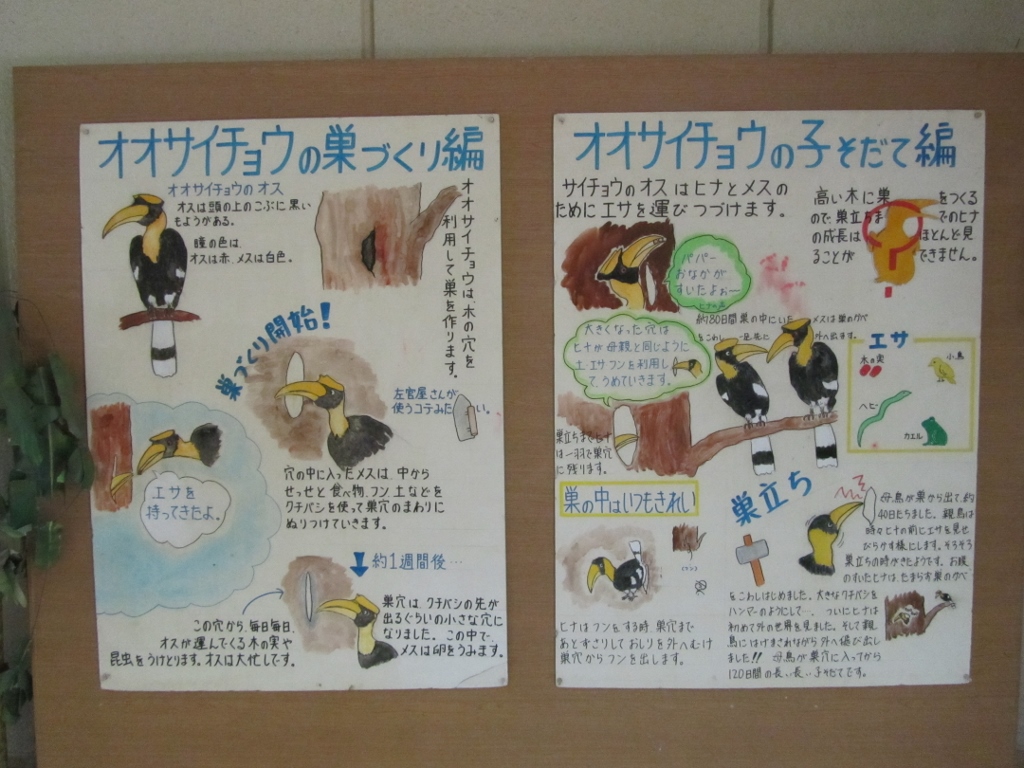 オオサイチョウの巣づくり編
オオサイチョウのオス
オスは頭の上のこぶに黒い
もようがある。
瞳の色は、
オスは赤、メスは白色。
オオサイチョウは、木の穴を
利用して巣を作ります。
巣づくり開始!
左官屋さんが
使うコテみたい。
穴の中に入ったメスは、中から
せっせと食べ物、フン、土などを
クチバシを使って巣穴のまわりに
ぬりつけていきます。
エサを
持ってきたよ。
約1週間後…
巣穴は、クチバシの先が
出るぐらいの小さな穴に
なりました。この中で、
メスは卵をうみます。
この穴から、毎日毎日、
オスが運んでくる木の実や
昆虫をうけとります。オスは大忙しです。
オオサイチョウの子そだて編
サイチョウのオスはヒナとメスの
ためにエサを運びつづけます。
高い木に巣をつくる
ので巣立ちまでのヒナ
の成長はほとんど見
ることができません。
パパー
おなかが
すいたよぉー
約80日間巣の中にいたメスは巣のカベ
をこわし一足先に外へ出ます。
大きくなった穴は
ヒナが母親と同じように
土、エサ、フンを利用し
て、うめていきます。
エサ
木の実
小鳥
ヘビー
カエル
巣立ちまでヒナ
は一羽で巣穴
に残ります。
巣の中はいつもきれい
ヒナはフンをする時、巣穴まで
あとずさりしておしりを外へむけ
巣穴からフンを出します。
巣立ち
母鳥が巣から出て、約
40日たちました。親鳥は
時々ヒナの前にエサを見せ
びらかす様にします。そろそろ
巣立ちの時がきたようです。お腹
のすいたヒナは、たまらず巣のカベ
をこわしはじめました。大きなクチバシを
ハンマーのようにして…、ついにヒナは
初めて外の世界を見ました。そして親
鳥にはげまされながら外へ飛び出し
ました!! 母鳥が巣穴に入ってから
120日間の長い長い子そだてです。